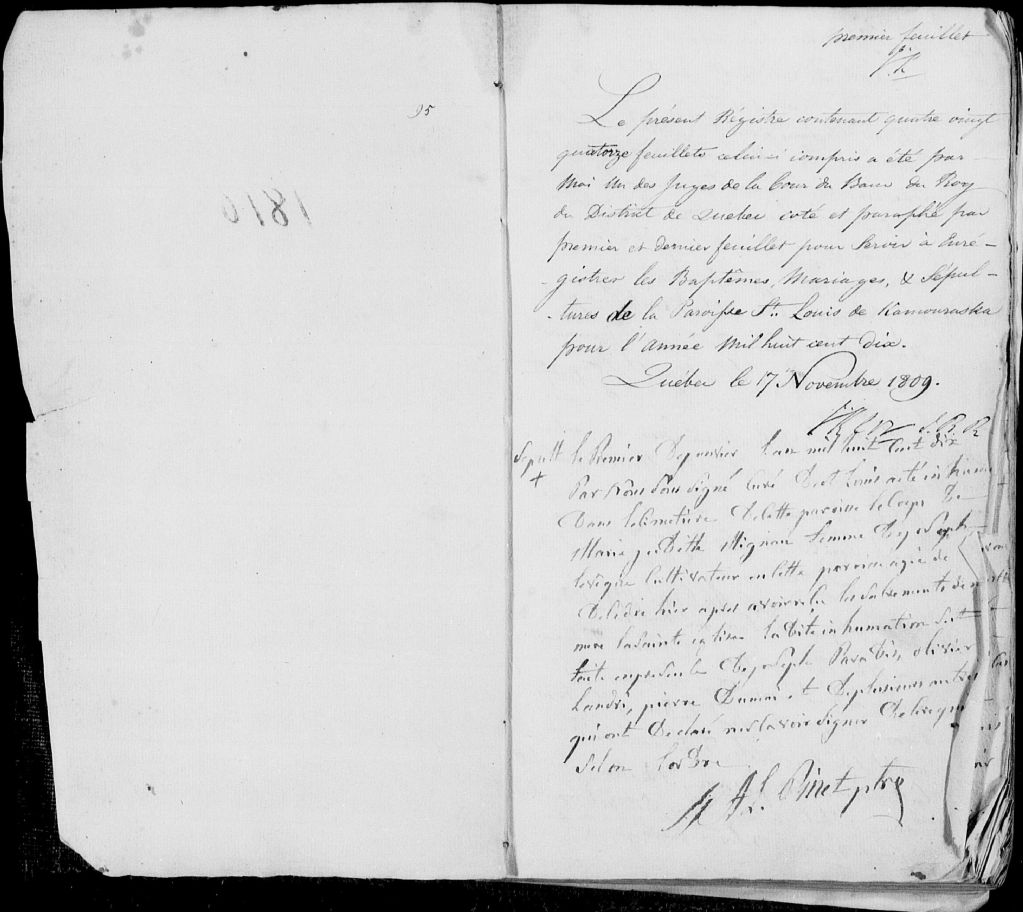 95
1810
premier feuillet
Le présent Régistre contenant quatre vingt
quatorze feuillets celui-ci compris a été par
Moi un des Juges de la Cour du Banc du Roy
du District de Québec coté et paraphé par
premier et dernier feuillet pour Servir à Enré-
-gistrer les Baptêmes, Mariages, & Sépul-
-tures de la Paroisse St. Louis de Kamouraska
pour l'année Mil huit cent dix.
Québec le 17 Novembre 1809.
Sepult le Premier De janvier Lan mil huit Cent dix
Par Nous Sous Signé Curé De St Louis a été inhumé
Dans le Cimetière De cette paroisse le Corps De
Marie Mignau femme De joseph
levêque Cultivateur en cette paroisse agée de
Decedée hier apres avoir les Sacrements de
mere la Sainte eglise la Dite inhumation
faite en presence De joseph Paradis, olivier
Landri, pierre Dumai et De plusieurs autres
qui ont Declaré ne Savoir Signer De
Selon
Pinet ptre